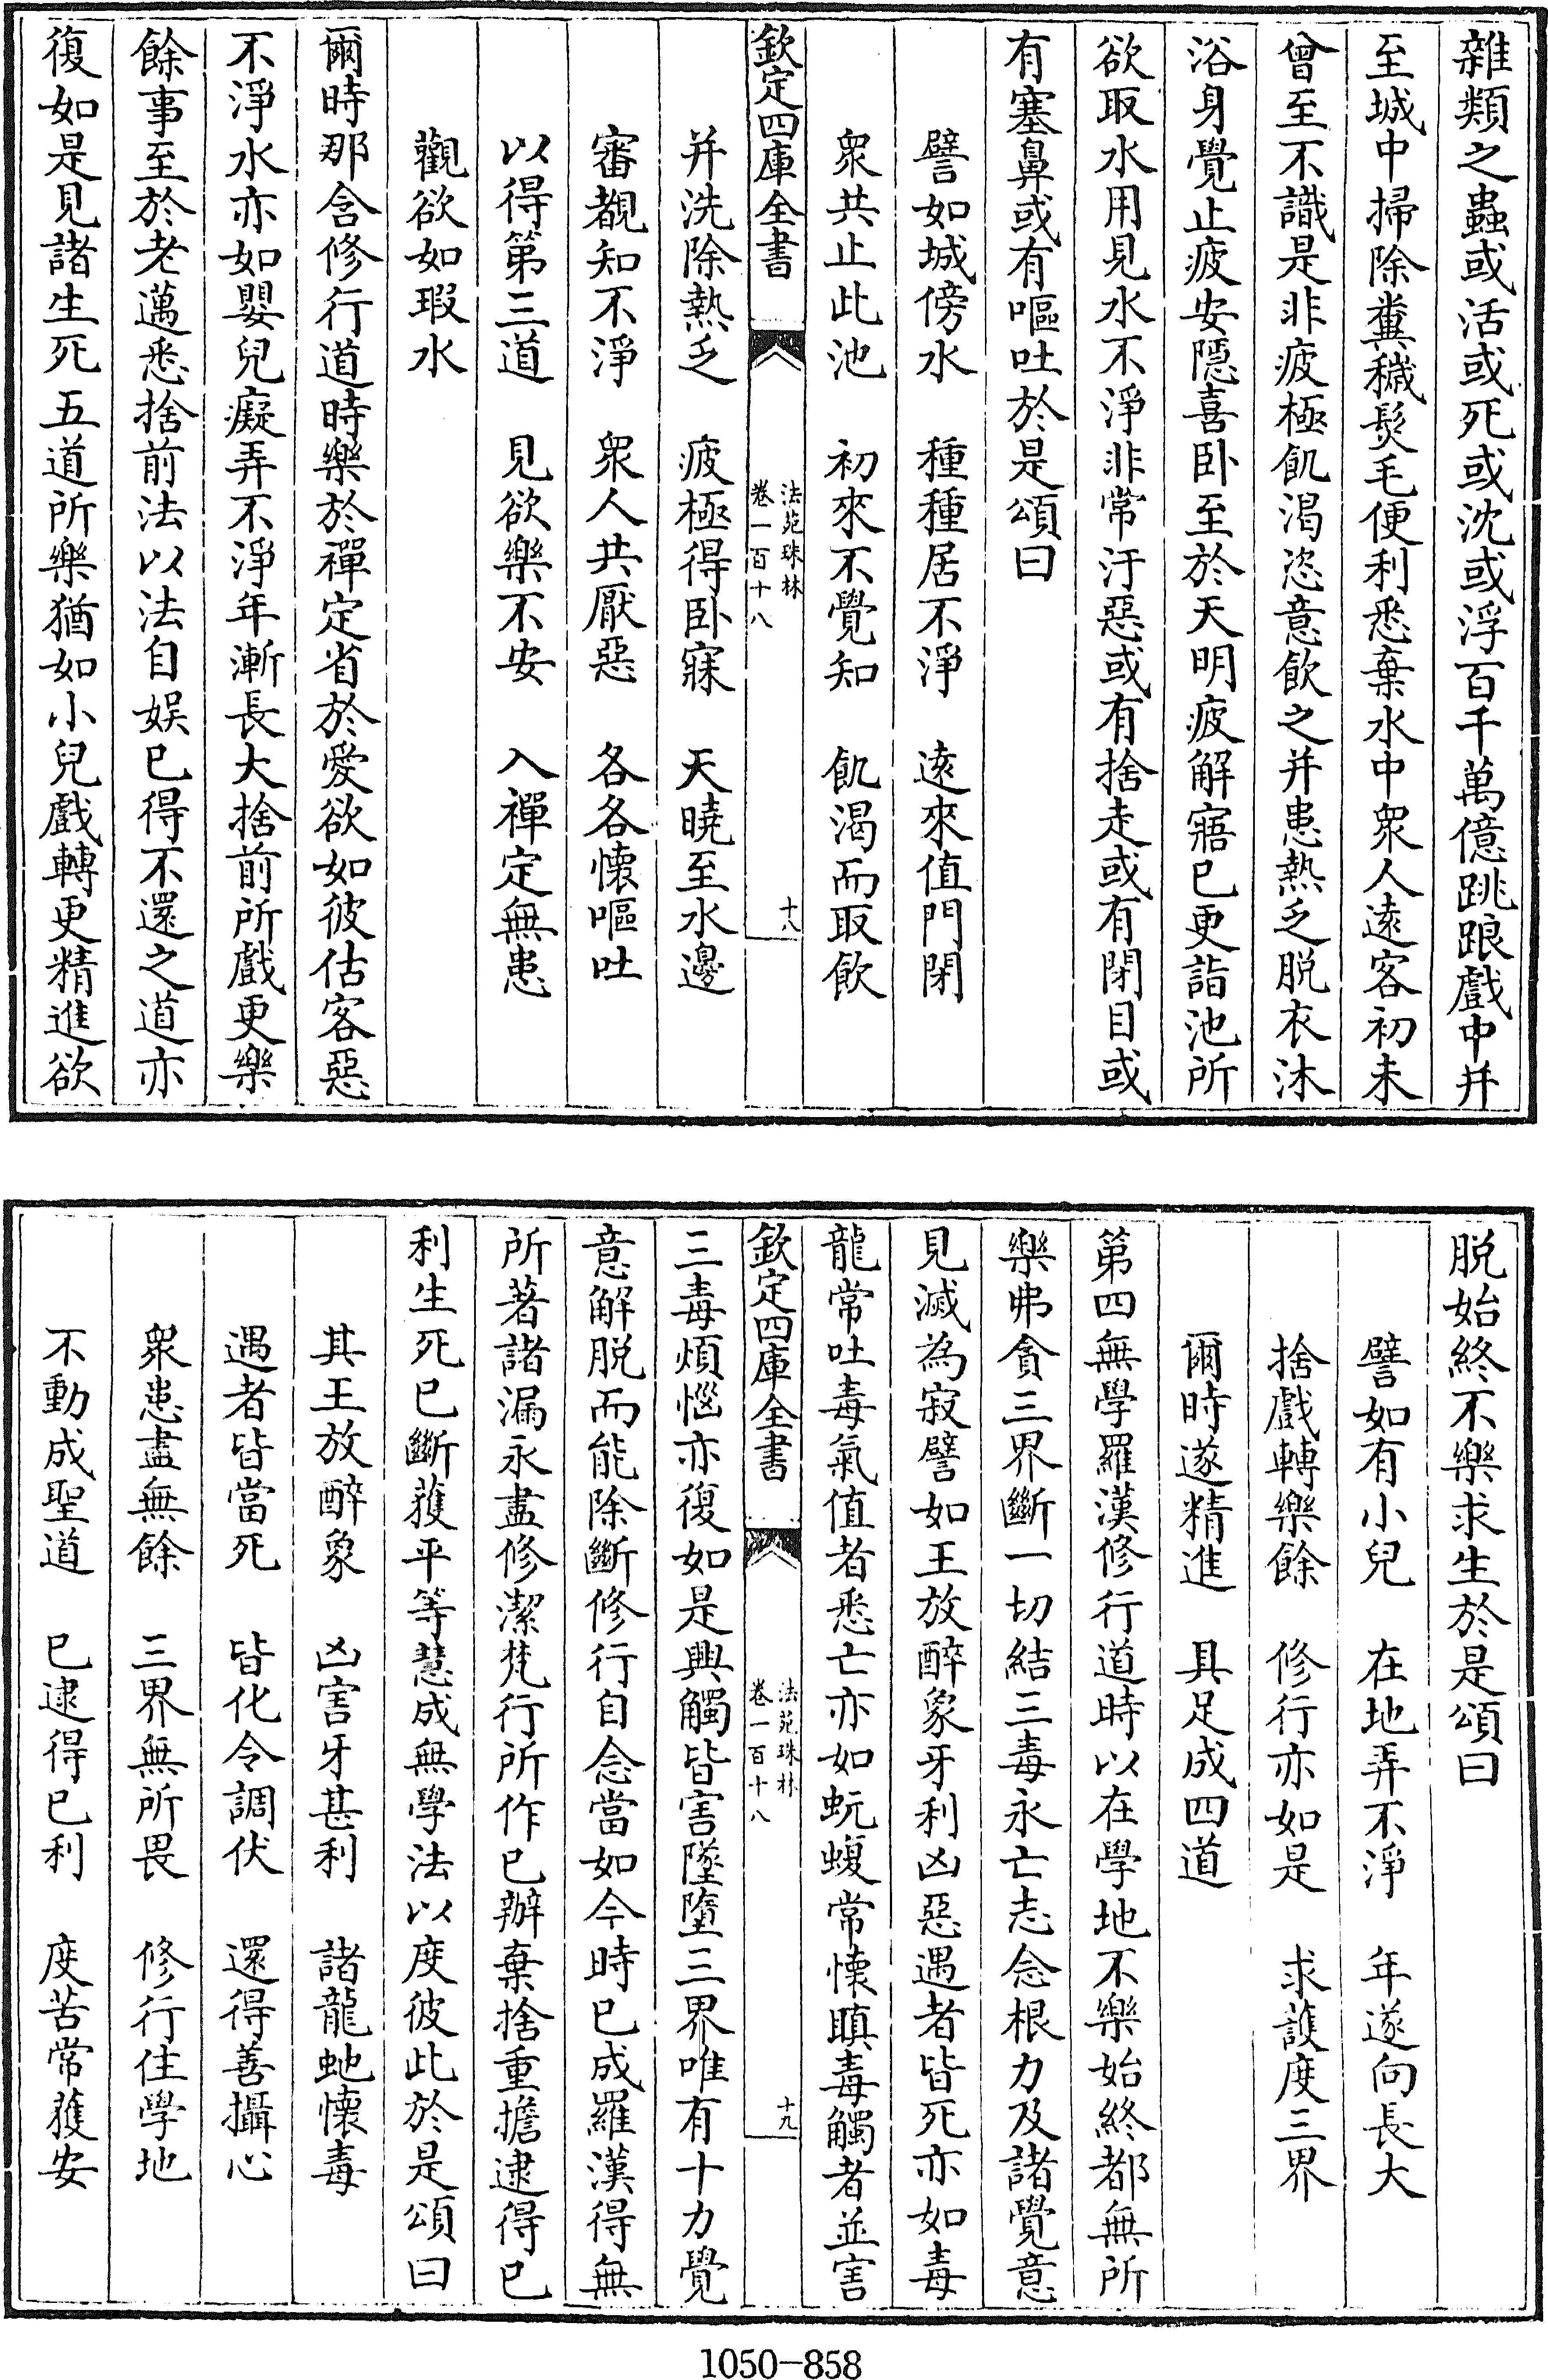 雜類之蟲或活或死或沈或浮百千萬億跳踉戲中并
至城中掃除糞穢髮毛便利悉棄水中衆人遠客初未
曾至不識是非疲極飢渴恣意飲之并患熱乏脱衣沐
浴身覺止疲安隱喜卧至於天明疲解寤已更詣池所
欲取水用見水不淨非常汙惡或有捨走或有閉目或
有塞鼻或有嘔吐於是頌曰
譬如城傍水　種種居不淨　遠來值門閉
衆共止此池　初來不覺知　飢渴而取飲
欽定四庫全書　法苑珠林　卷一百十八　十八
并洗除熱乏　疲極得卧寐　天曉至水邊
審覩知不淨　衆人共厭惡　各各懷嘔吐
以得第三道　見欲樂不安　入禪定無患
觀欲如瑕水
爾時那含修行道時樂於禪定省於愛欲如彼估客惡
不淨水亦如嬰兒癡弄不淨年漸長大捨前所戲更樂
餘事至於老邁悉捨前法以法自娱已得不還之道亦
復如是見諸生死五道所樂猶如小兒戲轉更精進欲
脱始終不樂求生於是頌曰
譬如有小兒　在地弄不淨　年遂向長大
捨戲轉樂餘　修行亦如是　求護度三界
爾時遂精進　具足成四道
第四無學羅漢修行道時以在學地不樂始終都無所
樂弗貪三界斷一切結三毒永亡志念根力及諸覺意
見滅為寂譬如王放醉象牙利凶惡遇者皆死亦如毒
龍常吐毒氣值者悉亡亦如蚖蝮常懷瞋毒觸者並害
欽定四庫全書　法苑珠林　卷一百十八　十九
三毒煩惱亦復如是興觸皆害墜墮三界唯有十力覺
意解脱而能除斷修行自念當如今時已成羅漢得無
所著諸漏永盡修潔梵行所作已辦棄捨重擔逮得已
利生死已斷獲平等慧成無學法以度彼此於是頌曰
其王放醉象　凶害牙甚利　諸龍虵懷毒
遇者皆當死　皆化令調伏　還得善攝心
衆患盡無餘　三界無所畏　修行住學地
不動成聖道　已逮得已利　度苦常獲安
1050-858